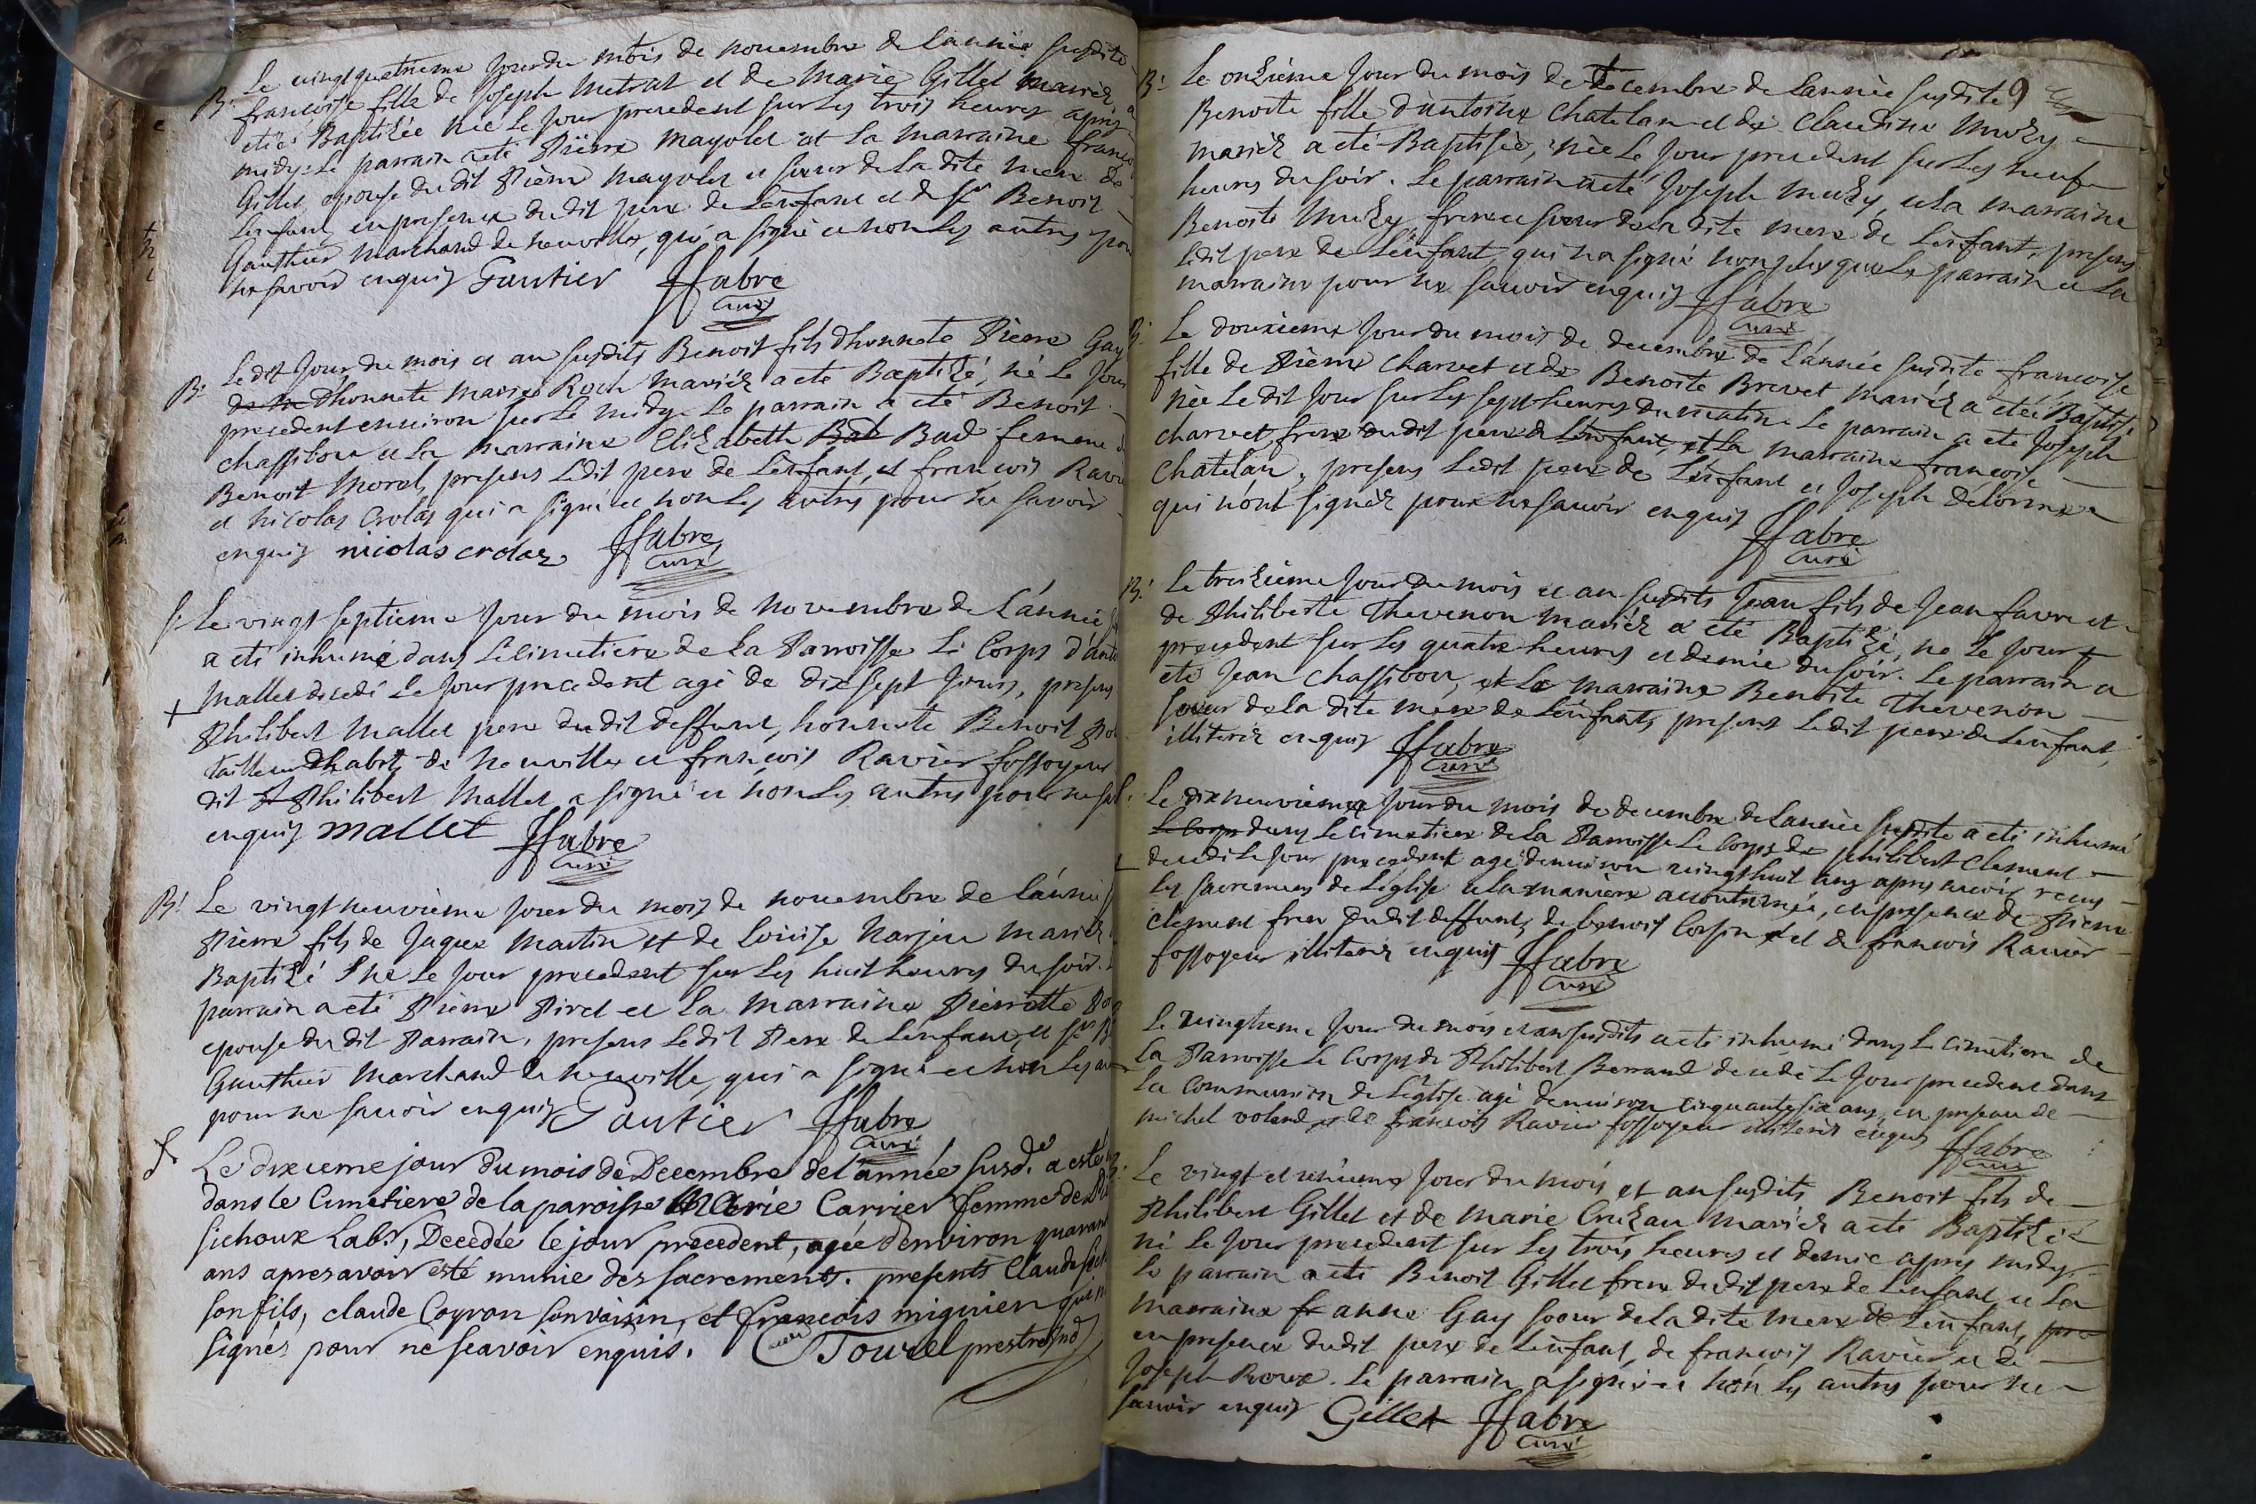 Le vingt quatrieme jour du mois de novembre de l'année susdite
B: françoise fille de Joseph Metrat et de Marie Gillet mariéz a
eté Baptisée née le jour precedent sur les trois heures apres
midy. Le parrain a eté Pierre Mayolet et la marraine franç
Gillet epouse du dit Pierre Mayolet et soeur de la dite mere de
l'enfant, en presence du dit pere de l'enfant et de Sr Benoit
Gauthier marchand de neuville, qui a signé et non les autres pour
ne savoir enquis Gautier JFabre
curé
Le dit jour du mois et an susdits Benoit fils d'honnete Pierre Gay
B: d'honnete Marie Roch mariéz a eté Baptisé, né le jour
precedent environ sur le midy. Le parrain a eté Benoit
chassibou et la marraine Elizabeth Bad femme d
Benoit Morel, presens le dit pere de l'enfant, et françois Ravi
et nicolas Crolas qui a signé et non les autres pour ne savoir
enquis nicolas crolas JFabre
curé
S: Le vingt septieme jour du mois de novembre de l'année
a eté inhumé dans le cimetiere de la Parroisse le Corps d'anto
Mallet decedé le jour precedent agé de dix sept jours, presens
Philibert Mallet pere du dit deffunt, honnete Benoit
tailleur d'habits de neuville et françois Ravier fossoyeur
dit Philibert Mallet a signé et non les autres pour ne sa
enquis mallet JFabre
curé
B: Le vingt neuvième jour du mois de novembre de l'année
Pierre fils de Jaque Martin et de loüise Narjou mariéz
Baptisé né le jour precedent sur les huit heures du soir.
parrain a eté Pierre Piret et la marraine Pierrette
epouse du dit Parrain, presens le dit Pere de l'enfant, et Sr B
Gauthier Marchand de neuville, qui a signé et non les au
pour ne savoir enquis Gautier JFabre
curé
S. Le dixieme jour du mois de Decembre de l'année susd.e a esté
dans le Cimetiere de la paroisse Marie Carrier femme de
Sichoux Labr, Decedée le jour precedent, agée d'environ quarante
ans apres avoir esté munie des sacrements. presents Claude
son fils, claude Coyron son voisin, et françois mignien qui n
signés pour ne sçavoir enquis. Tourel prestre
9
B: Le onzième jour du mois de decembre de l'année susdite
Benoite fille d'antoine Chatelan et de Claudine Muzy
mariéz a eté Baptisée, née le jour precedent sur les neuf
heures du soir. Le parrain a eté Joseph Muzy, et la marraine
Benoite Muzy frere et soeur de la dite mere de l'enfant, presens
le dit pere de l'enfant, qui n'a signé non plus que le parrain et la
marraine pour ne savoir enquis JFabre
curé
B: Le douzieme jour du mois de decembre de l'année susdite françoise
fille de Pierre Charvet et de Benoite Brevet mariéz a eté Baptisé
née le dit jour sur les sept heures du matin. Le parrain a eté Joseph
charvet, frere du dit pere de l'enfant, et la marraine françoise
Chatelan, presens le dit pere de l'enfant et Joseph Delorme
qui n'ont signéz pour ne savoir enquis JFabre
curé
B: Le treizième jour du mois et an susdits Jean fils de Jean favre et
de Philiberte Thevenon mariéz a eté Baptisé, né le jour
precedent sur les quatre heures et demie du soir. Le parrain a
eté Jean chassibou, et la marraine Benoite Thevenon
soeur de la dite mere de l'enfant, presens le dit pere de l'enfant,
illiteréz enquis JFabre
curé
Le dix neuvième jour du mois de decembre de l'année susdite a eté inhumé
le corps dans le cimetiere de la Parroisse le corps de philibert Clement
decedé le jour precedent agé d'environ vingt huit ans apres avoir reçu
les sacremens de l'église a la manière accoutumée, en presence de Pierre
clement frere du dit deffunt, de benoit Corsin et de françois Ravier
fossoyeur illiteréz enquis JFabre
curé
Le vingtieme jour du mois et an susdits a eté inhumé dans le cimetiere de
la Parroisse le Corps de Philibert Berraud decedé le jour precedent dans
la communion de l'église agé d'environ cinquante six ans, en presence de
michel voland, et de françois Ravier fossoyeur illiteréz enquis JFabre
curé
Le vingt et unième jour du mois et an susdits Benoit fils de
Philibert Gillet et de Marie Cruzau mariéz a eté Baptisé
né le jour precedent sur les trois heures et demie apres midy.
Le parrain a eté Benoit Gillet frere du dit pere de l'enfant et la
marraine anne Gay soeur de la dite mere de l'enfant,
en presence du dit pere de l'enfant, de françois Ravier et de
Joseph Roux. Le parrain a signé et non les autres pour ne
savoir enquis Gillet JFabre
curé